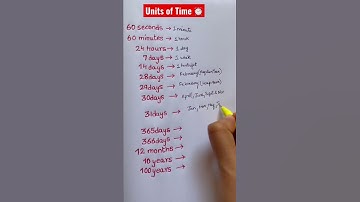 Units of Time ⏰
60 seconds → 1 minute
60 minutes → 1 hour
24 hours → 1 day
7 days → 1 week
14 days → 1
28 days → February
29 days → February
30 days → April, June, Sept & Nov
31 days → Jan, Mar, May, J
365 days →
366 days →
12 months →
10 years →
100 years →